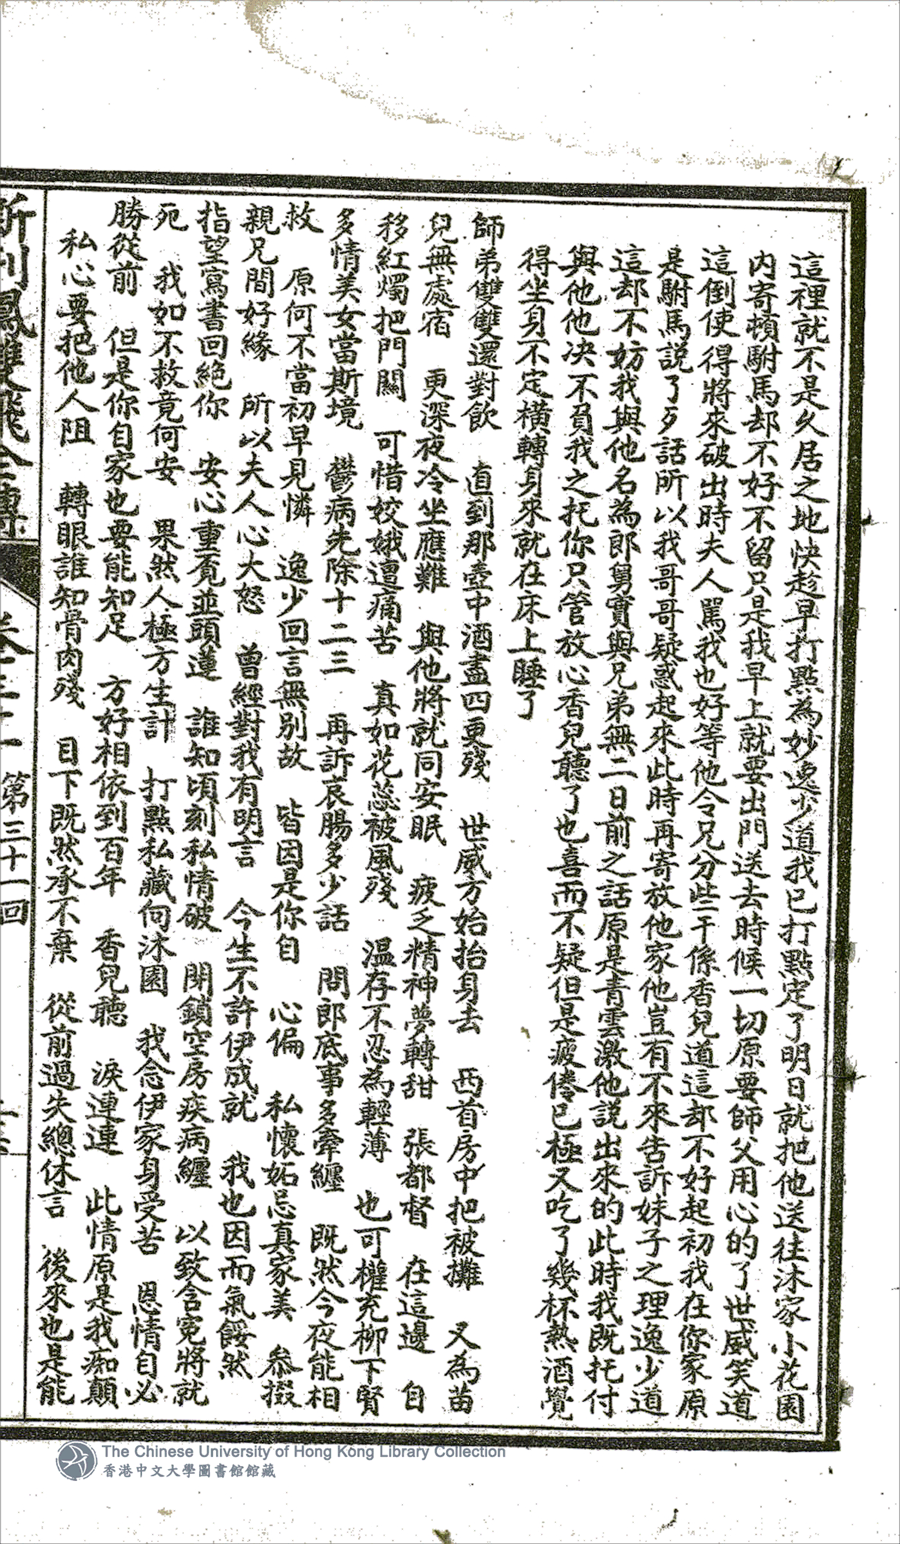 這裡就不是久居之地快趁早打點為妙逸少道我已打點定了明日就把他送往沐家小花園
內寄頓駙馬却不好不留只是我早上就要出門送去時候一切原要師父用心的了世威笑道
這倒使得將來破出時夫人罵我也好等他令兄分些干係香兒道這却不好起初我在你家原
是駙馬說了歹話所以我哥哥疑惑起來此時再寄放他家他豈有不來告訴妹子之理逸少道
這却不妨我與他名為郎舅實與兄弟無二日前之話原是青雲激他說出來的此時我既托付
與他他决不負我之托你只管放心香兒聽了也喜而不疑但是疲倦已極又吃了幾杯熱酒覺
得坐身不定橫轉身來就在床上睡了
師弟雙雙還對飲 直到那壺中酒盡四更殘 世威方始抬身去 西首房中把被攤 又為苗
兒無處宿 更深夜冷坐應難 與他將就同安眠 疲乏精神夢轉甜 張都督 在這邊 自
移紅燭把門關 可惜姣娥遭痛苦 真如花蕊被風殘 溫存不忍為輕薄 也可權充柳下賢
多情美女當斯境 鬱病先除十二三 再訴衷腸多少話 問郎底事多牽纏 既然今夜能相
救 原何不當初早見憐 逸少回言無別故 皆因是你自 心偏 私懷妬忌真家美 叅掇
親兄間好緣 所以夫人心大怒 曾經對我有明言 今生不許伊成就 我也因而氣餒然
指望寫書回絕你 安心重覓並頭蓮 誰知頃刻私情破 閉鎖空房疾病纏 以致含冤將就
死 我如不救竟何安 果然人極方生計 打點私藏向沐園 我念伊家身受苦 恩情自必
勝從前 但是你自家也要能知足 方好相依到百年 香兒聽 淚連連 此情原是我痴顛
私心要把他人阻 轉眼誰知骨肉殘 目下既然承不棄 從前過失總休言 後來也是能
新刊鳳雙飛全傳 卷三十一 第三十一回
The Chinese University of Hong Kong Library Collection
香港中文大學圖書館館藏